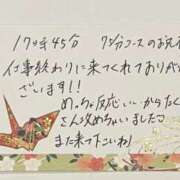 17時45分　75分コースのお兄様
仕事終わりに来てくれてありがとう
ございます!!
めっちゃ反応いいからたく
さん攻めちゃいました
また来て下さいね)